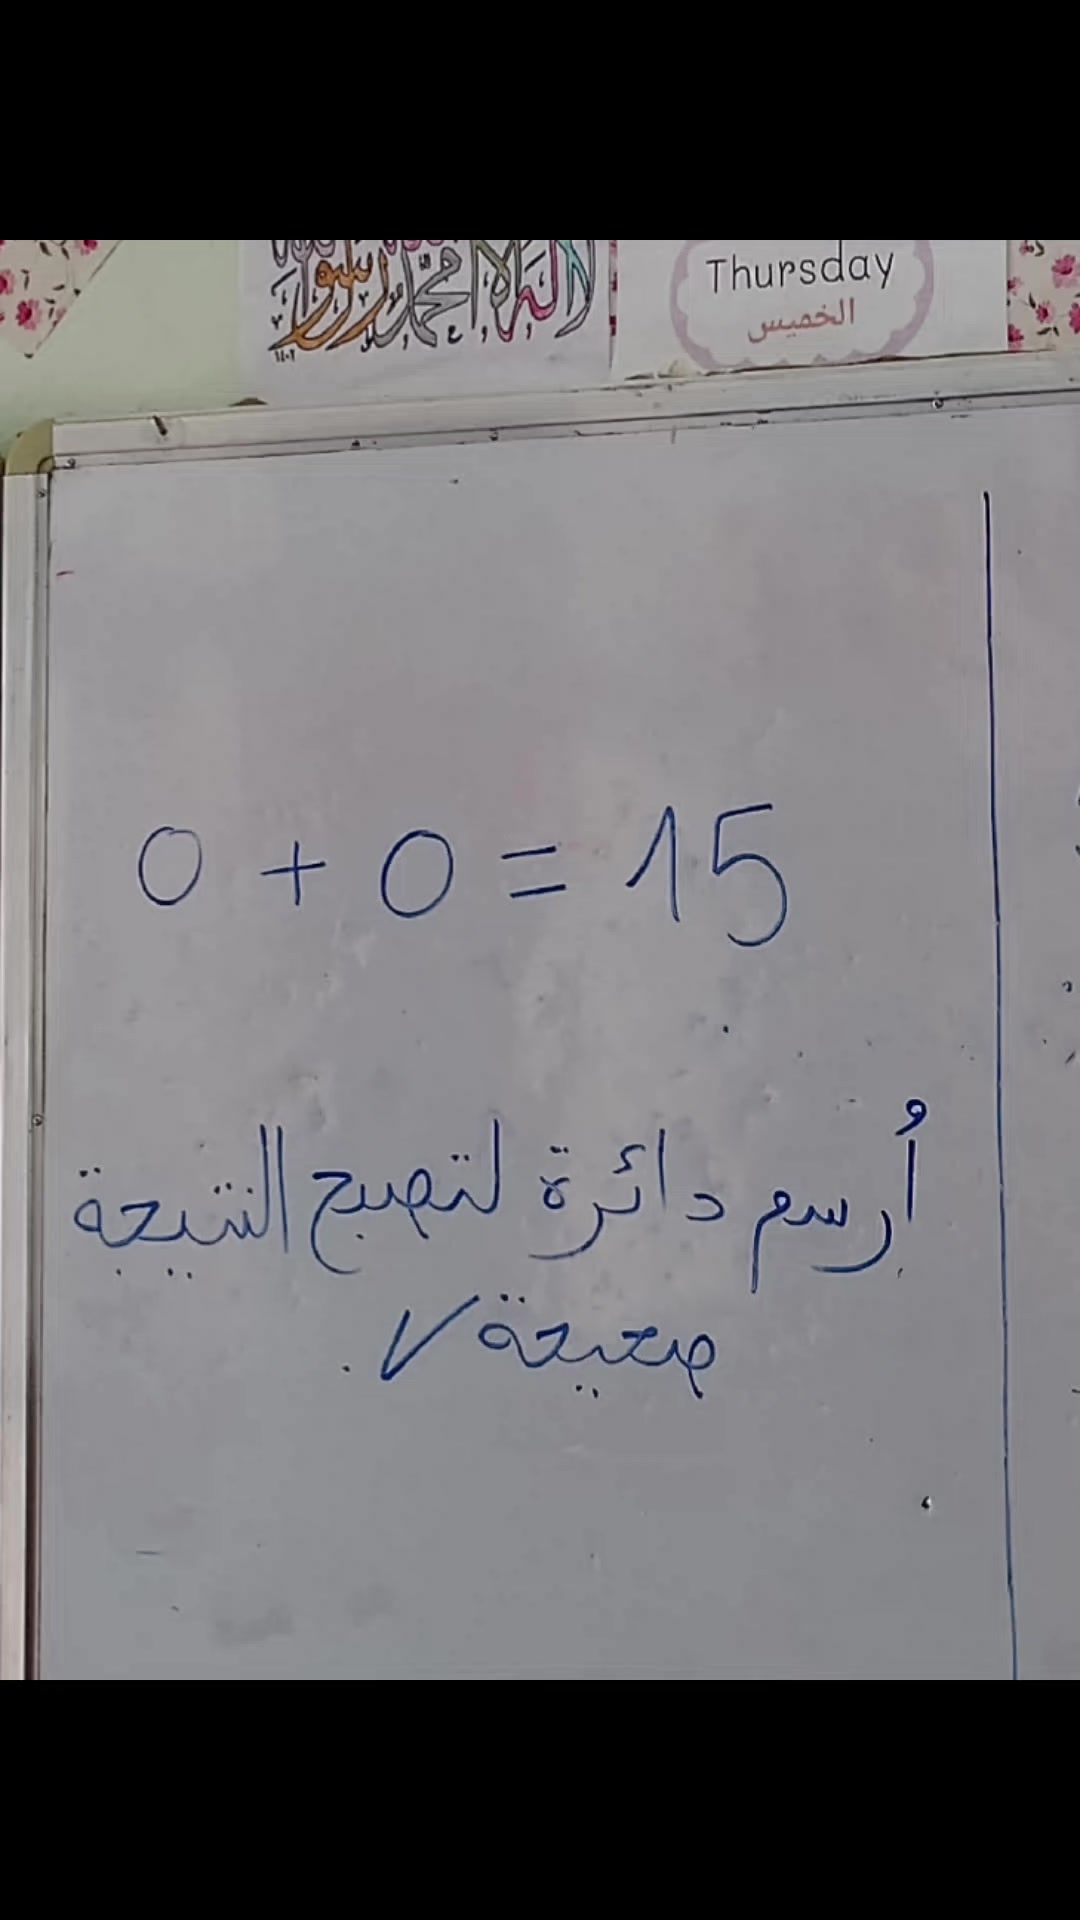 لا إله إلا الله محمد رسول الله
Thursday
الخميس
0 + 0 = 15
أُرسم دائرة لتصبح النتيجة
صحيحة ✓.